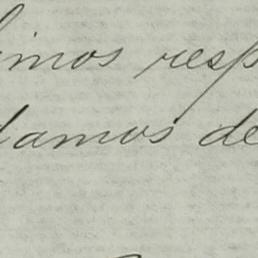 imos resp
damos de